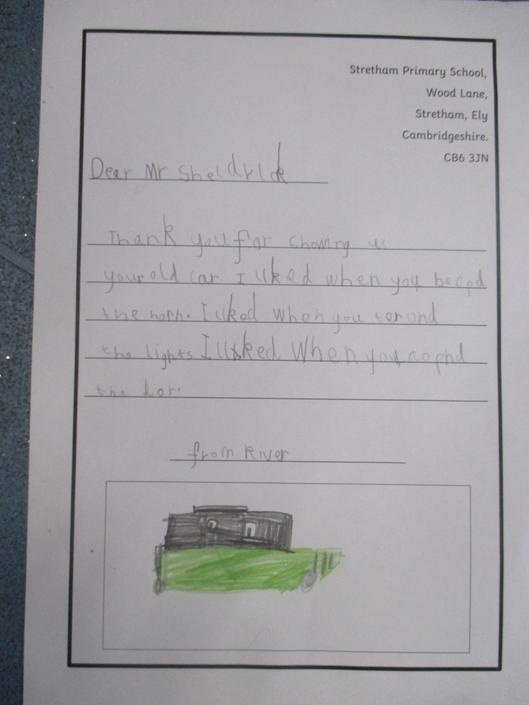 Stretham Primary School,
Wood Lane,
Stretham, Ely
Cambridgeshire.
CB6 3JN
Dear Mr Sheldrick
Thank you for showing us
your old car. I liked when you beepd
the horn. I liked when you ternd
the lights I liked When you oopnd
the dor.
from River